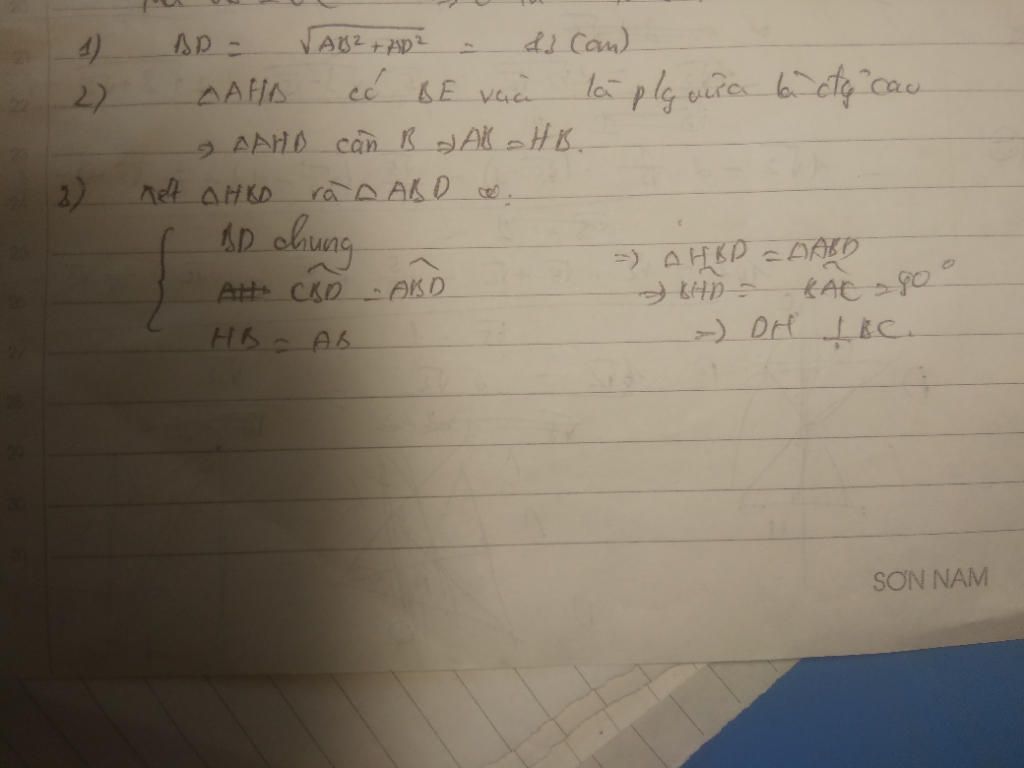 1) BD = √AB² + AD² = (cm)
2) △AHB có BE vừa là plg vừa là đg cao
⇒ △AHB cân B ⇒ AB = HB.
3) xét △HBD và △ABD
BD chung
CBD = ABD
HB = AB
⇒ △HBD = △ABD
⇒ BHD = BAC = 90°
⇒ DH ⊥ BC.
SƠN NAM